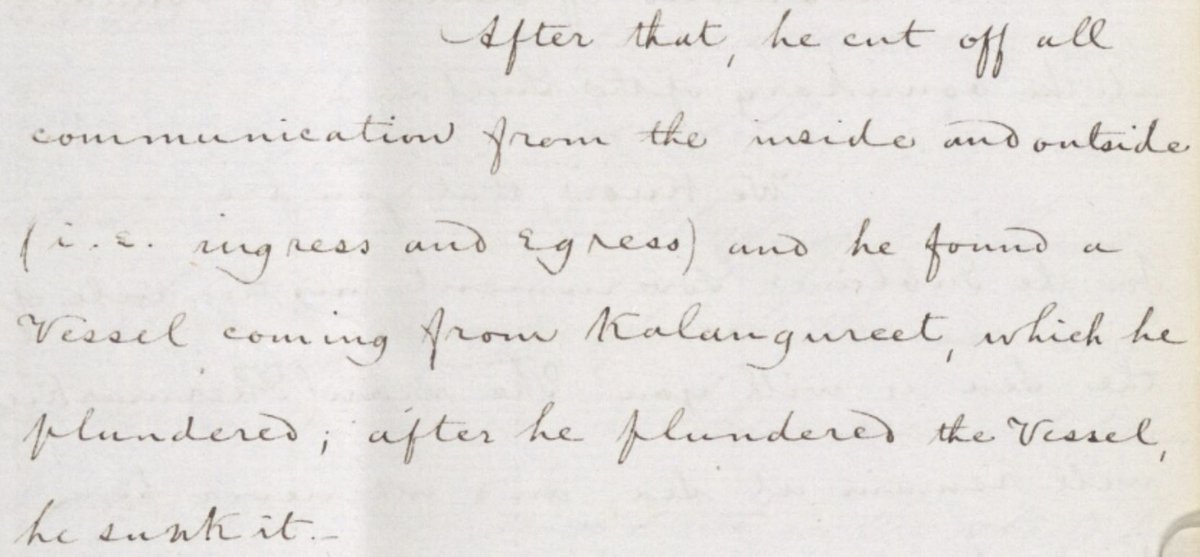 After that, he cut off all
communication from the inside and outside
(i.e. ingress and Egress) and he found a
Vessel coming from Kalangureet, which he
plundered; after he plundered the Vessel,
he sunk it.-